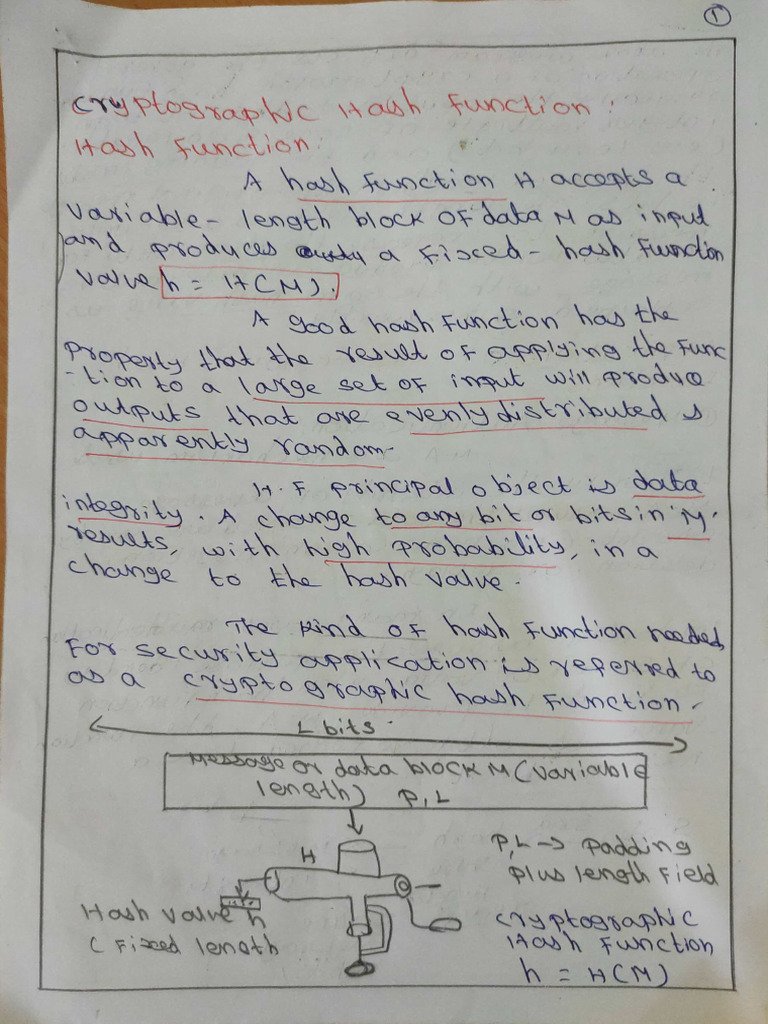 1
Cryptographic Hash Function:
Hash Function:
A hash function H accepts a
variable-length block of data M as input
and produces a fixed-hash function
value h = H(M).
A good hash function has the
property that the result of applying the func
-tion to a large set of input will produce
outputs that are evenly distributed &
apparently random.
H.F principal object is data
integrity. A change to any bit or bits in 'M'
results, with high probability, in a
change to the hash value.
The kind of hash function needed
for security application is referred to
as a cryptographic hash function.
L bits.
Message or data block M (variable
length) P, L
H
P, L → padding
plus length field
Hash value h
(fixed length
cryptographic
Hash function
h = H(M)